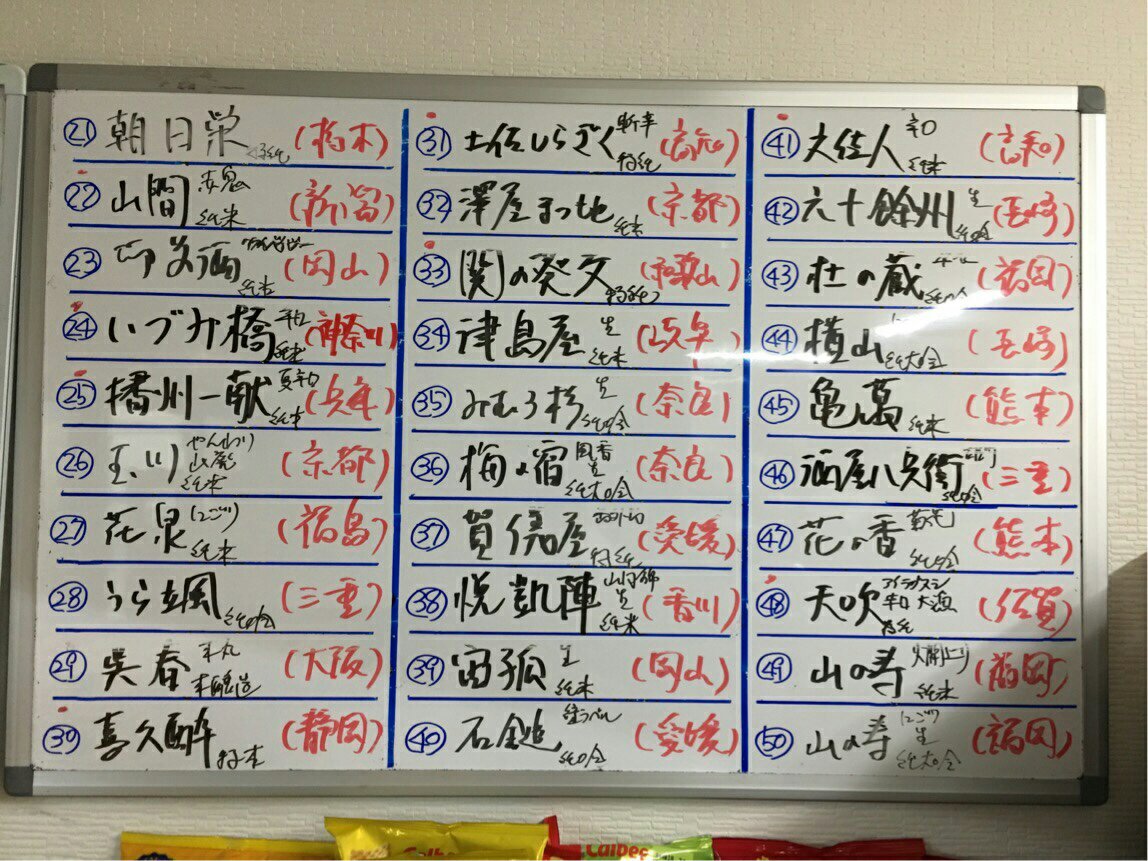 21 朝日栄 (栃木)
22 山間 赤鬼 純米 (新潟)
23 御前酒 純米 (岡山)
24 いづみ橋 純米 (神奈川)
25 播州一献 夏辛口 純米 (兵庫)
26 玉川 やんわり 山廃 純米 (京都)
27 花泉 にごり 純米 (福島)
28 うら立風 純吟 (三重)
29 呉春 本丸 本醸造 (大阪)
30 喜久酔 特本 (静岡)
31 土佐しらぎく 斬辛 特純 (高知)
32 澤屋まつもと 純米 (京都)
33 関の葵文 (和歌山)
34 津島屋 生 純米 (岐阜)
35 みむろ杉 生 純吟 (奈良)
36 梅の宿 風香 生 純大吟 (奈良)
37 賀儀屋 特純 (愛媛)
38 悦凱陣 山田錦 生 純米 (香川)
39 宙狐 生 純米 (岡山)
40 石鎚 緑ラベル 純吟 (愛媛)
41 文佳人 辛口 純米 (高知)
42 六十餘州 生 純吟 (長崎)
43 杜の蔵 純吟 (福岡)
44 横山 純大吟 (長崎)
45 亀萬 純米 (熊本)
46 酒屋八兵衛 純吟 (三重)
47 花の香 菊花 純吟 (熊本)
48 天吹 辛口 大漁 特純 (佐賀)
49 山の寿 純米 (福岡)
50 山の寿 にごり 生 純大吟 (福岡)
Calbee
Calbee